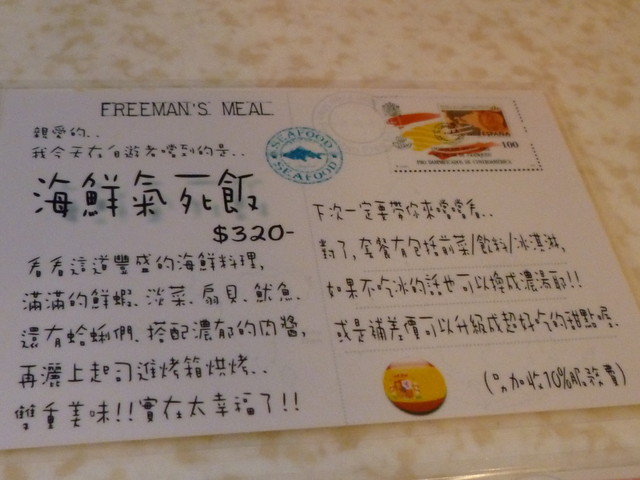 FREEMAN'S MEAL
親愛的..
我今天在自遊者嚐到的是..
海鮮氣死飯
$320-
看看這道豐盛的海鮮料理,
滿滿的鮮蝦、淡菜、扇貝、魷魚、
還有蛤蜊們、搭配濃郁的肉醬,
再灑上起司進烤箱烘烤..
雙重美味!!實在太幸福了!!
SEAFOOD
SEAFOOD
ESPAÑA
100
下次一定要帶你來嚐嚐看..
對了,套餐有包括前菜/飲料/冰淇淋,
如果不吃冰的話也可以換成濃湯耶!!
或是補差價可以升級成超好吃的甜點喔.
(另加收10%服務費)